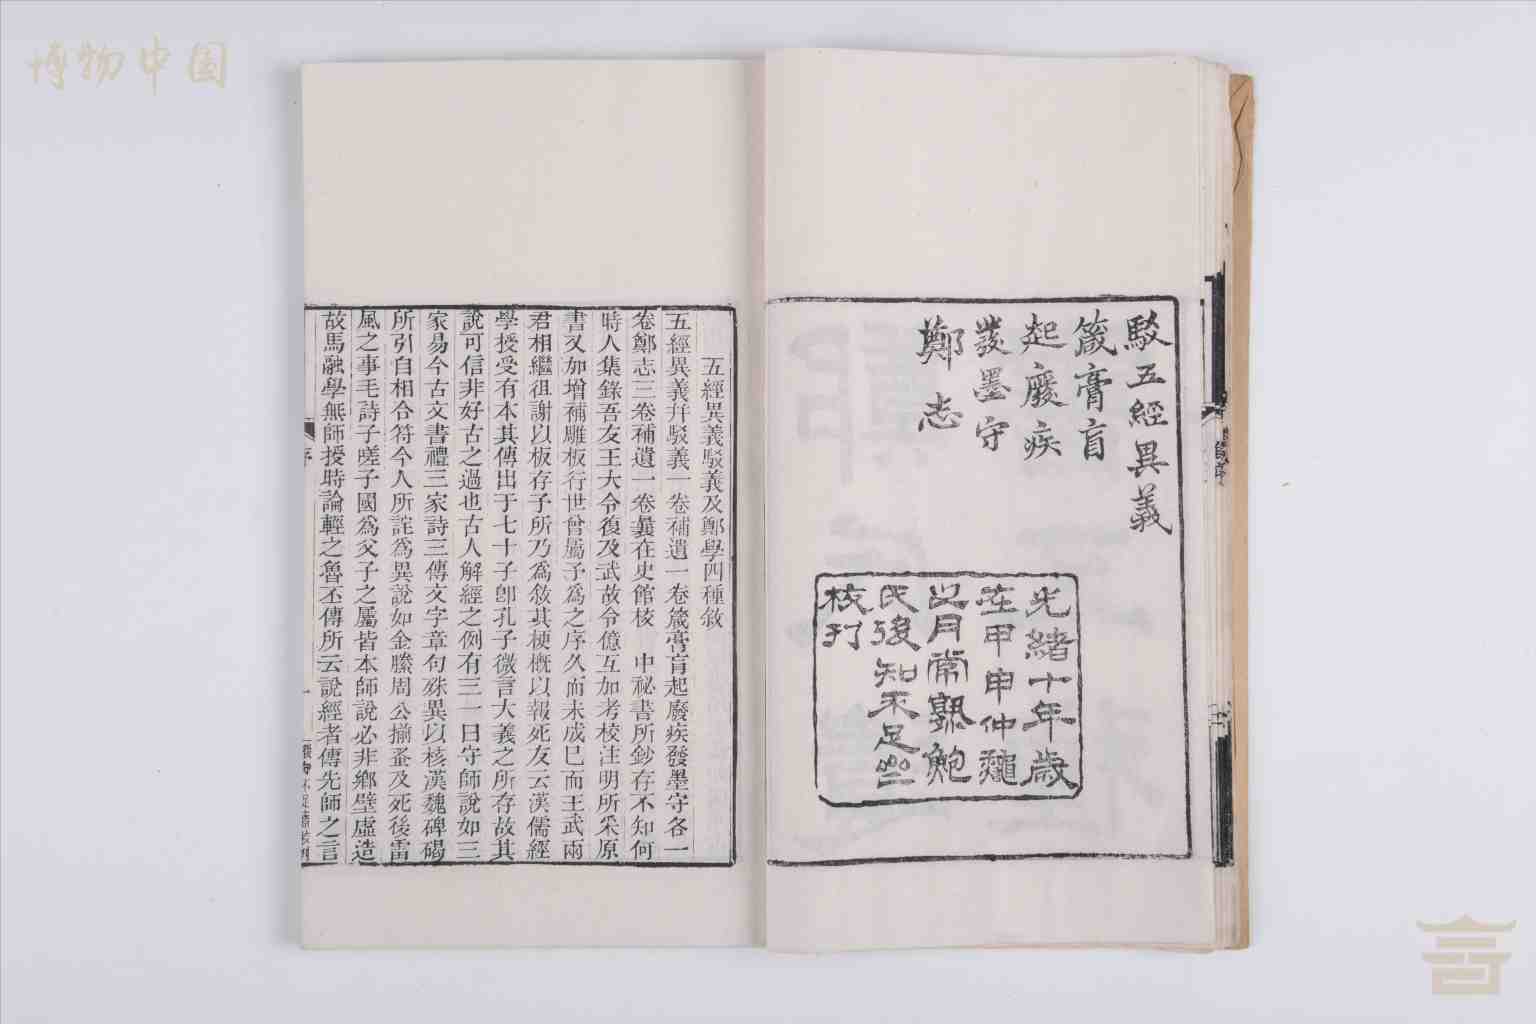 博物中国
駁五經異義
箴膏肓
起廢疾
發墨守
鄭志
光緒十年歲
在甲申仲龝
之月常郭鮑
氏後知不足齋
校刊
五經異義駁義及鄭學四種敘
五經異義幷駁義一卷補遺一卷箴膏肓起廢疾發墨守各一
卷鄭志三卷補遺一卷曩在史館校 中祕書所鈔存不知何
時人集錄吾友王大令復及武故令億互加考校注明所采原
書又加增補雕板行世曾屬予爲之序久而未成巳而王武兩
君相繼徂謝以板存予所乃爲敘其梗槪以報死友云漢儒經
學授受有本其傳出于七十子卽孔子微言大義之所存故其
說可信非好古之過也古人解經之例有三一曰守師說如三
家易今古文書禮三家詩三傳文字章句殊異以核漢魏碑碣
所引自相合符今人所詫爲異說如金縢周公揃蚤及死後雷
風之事毛詩子嗟子國爲父子之屬皆本師說必非鄉壁虛造
故馬融學無師授時論輕之魯丕傳所云說經者傳先師之言
序
一